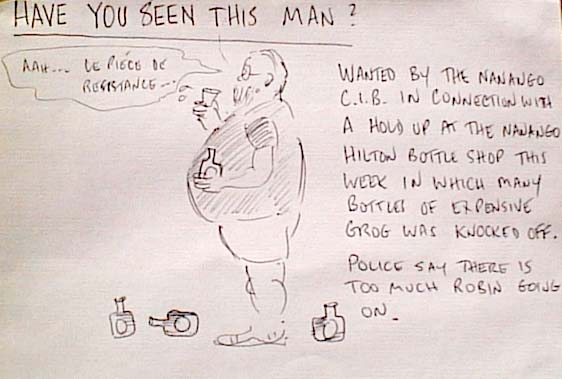 HAVE YOU SEEN THIS MAN?
AAH... LE PIÉCE DE
RESISTANCE...
WANTED BY THE NANANGO
C.I.B. IN CONNECTION WITH
A HOLD UP AT THE NANANGO
HILTON BOTTLE SHOP THIS
WEEK IN WHICH MANY
BOTTLES OF EXPENSIVE
GROG WAS KNOCKED OFF.
POLICE SAY THERE IS
TOO MUCH ROBIN GOING
ON_